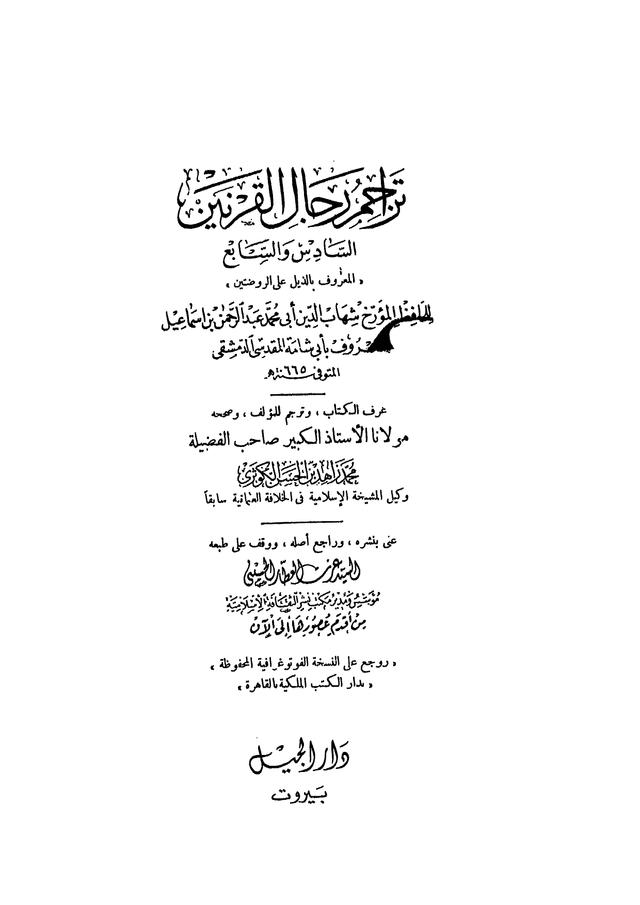 تراجم رجال القرنين
السادس والسابع
« المعروف بالذيل على الروضتين »
للحافظ المؤرخ شهاب الدين أبي محمد عبد الرحمن بن اسماعيل
بأبي شامة المقدسي الدمشقي
المتوفى سنة ٦٦٥ هـ
عرف الكتاب ، وترجم للمؤلف ، وصححه
مولانا الأستاذ الكبير صاحب الفضيلة
محمد زاهد بن الحسن الكوثري
وكيل المشيخة الإسلامية في الخلافة العثمانية سابقاً
عني بنشره ، وراجع أصله ، ووقف على طبعه
السيد عزت العطار الحسيني
مؤسس ومدير مكتب نشر الثقافة الإسلامية
من أقدم عصورها إلى الآن
« روجع على النسخة الفوتوغرافية المحفوظة »
« بدار الكتب الملكية بالقاهرة »
دار الجيل
بيروت